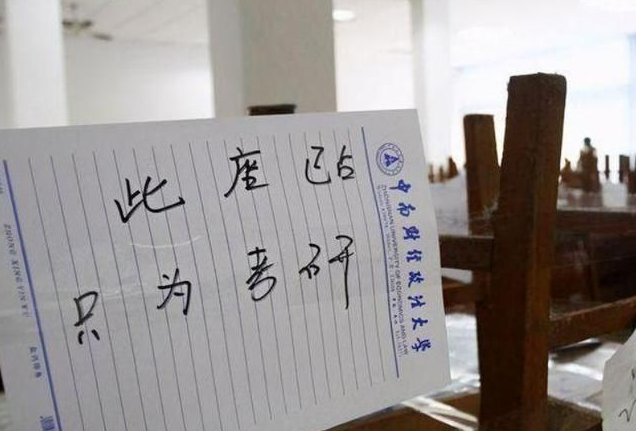 此座已占
只为考研
中南财经政法大学
ZHONGNAN UNIVERSITY OF ECONOMICS AND LAW